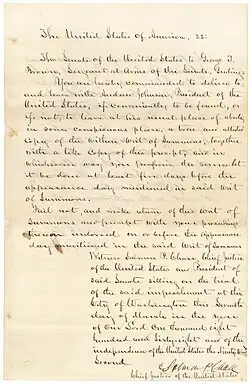 The United States of America, ss:
The Senate of the United States to George T.
Brown, Sergeant at Arms of the Senate, Greeting:
You are hereby commanded to deliver to
and leave with Andrew Johnson, President of the
United States, if conveniently to be found, or
if not, to leave at his usual place of abode,
in some conspicuous place, a true and attested
Copy of the within Writ of Summons, together
with a like Copy of this precept; and in
whichsoever way you perform the service let
it be done at least five days before the
appearance day mentioned in said Writ
of Summons.
Fail not, and make return of this Writ of
Summons and precept with your proceedings
thereon indorsed on or before the appearance
day mentioned in the said Writ of Summons
Witness Salmon P. Chase Chief Justice
of the United States and President of
said Senate sitting on the trial
of the said impeachment at the
City of Washington this Seventh
day of March in the year
of Our Lord One thousand eight
hundred and Sixty eight and of the
independence of the United States the Ninety
Second
Salmon P. Chase
Chief Justice of the United States